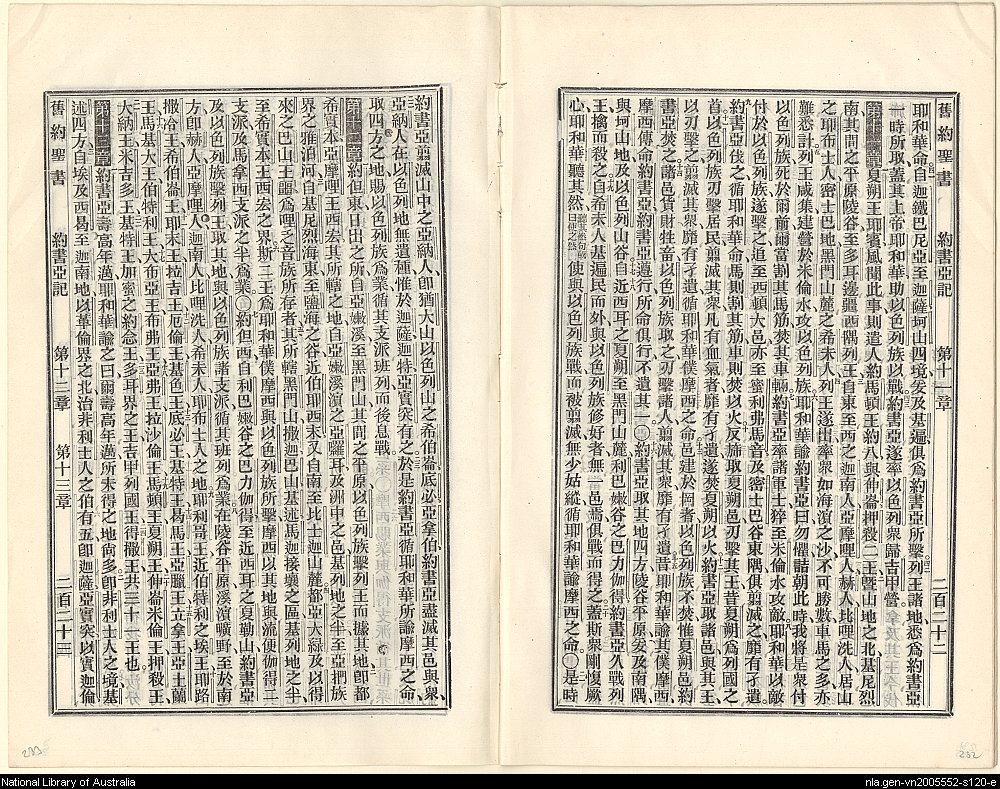 舊約聖書 約書亞記 第十一章 二百二十二
耶和華命自迦鐵巴尼亞至迦薩坷山四境爰及基遍俱爲約書亞所擊列王諸地悉爲約書亞
一時所取蓋其上帝耶和華助以色列族以戰約書亞遂率以色列衆歸吉甲營
第十一章夏朔王耶賓風聞此事則遣人約馬頓王約八與伸崙押殺二王暨山地之北基尼烈
南其間之平原陵谷至多耳邊疆西隅列王自東至西之迦南人亞摩哩人赫人比哩洗人居山
之耶布士人密士巴地黑門山麓之希未人列王遂出率衆如海濱之沙不可勝數車馬之多亦
難悉計列王咸集建營於米倫水攻以色列族耶和華諭約書亞曰勿懼詰朝此時我將是衆付
以色列族死於爾前爾當割其馬筋焚其車輛約書亞率諸軍士猝至米倫水攻敵耶和華以敵
付於以色列族遂擊之追至西頓大邑亦至蜜利弗馬音及密士巴谷東隅俱翦滅之靡有孑遺
約書亞伐之循耶和華命馬則割其筋車則焚以火反斾取夏朔邑刃擊其王昔夏朔爲列國之
首以色列族刃擊居民翦滅其衆凡有血氣者靡有孑遺遂焚夏朔以火約書亞取諸邑與其王
以刃擊之翦滅其衆靡有孑遺循耶和華僕摩西之命邑建於岡者以色列族不焚惟夏朔邑約
書亞焚之諸邑貨財牲畜以色列族取之刃擊諸人翦滅其衆靡有孑遺昔耶和華諭其僕摩西
摩西傳命約書亞約書亞遵行所命俱行不遺其一約書亞取其地四方陵谷平原爰及南隅
與坷山地及以色列山谷自近西耳之夏朔至黑門山麓利巴嫩谷之巴力伽得約書亞久戰列
王擒而殺之自希未人基遍民而外與以色列族修好者無一邑焉俱戰而得之蓋斯衆剛愎厥
心耶和華聽其然使與以色列族戰而被翦滅無少姑縱循耶和華諭摩西之命是時
約書亞翦滅山中之亞納人卽猶大山以色列山之希伯崙底必亞拿伯約書亞盡滅其邑與衆
亞納人在以色列地無遺種惟於迦薩迦特亞實突有之於是約書亞循耶和華所諭摩西之命
取四方之地賜以色列族爲業循其支派班列而後息戰
第十二章約但東日出之所自亞嫩溪至黑門山其間之平原以色列族擊列王而據其地卽都
希實本亞摩哩王西宏其所轄之地自亞嫩溪濱之亞羅耳及洲中之邑基列地之半至亞捫族
界之雅泊河自基尼烈海東至鹽海之谷近伯耶西末又自南至比士迦山麓都亞大綠及以得
來之巴山王噩爲哩乏音族所存者其所轄黑門山撒迦巴山基述馬迦接壤之區基列地之半
至希實本王西宏之界斯二王爲耶和華僕摩西與以色列族所擊摩西以其地與流便伽得二
支派及馬拿西支派之半爲業約但西自利巴嫩谷之巴力伽得至近西耳之夏勒山約書亞
及以色列族擊列王取其地與以色列族諸支派循其班列爲業在陵谷平原溪濱曠野至於南
方卽赫人亞摩哩人迦南人比哩洗人希未人耶布士人之地耶利哥王近伯特利之埃王耶路
撒冷王希伯崙王耶末王拉吉王厄倫王基色王底必王基特王曷馬王亞臘王立拿王亞土蘭
王馬基大王伯特利王大布亞王布弗王亞弗王拉沙倫王馬頓王夏朔王伸崙米倫王押殺王
大納王米吉多王基特王加蜜之約念王多耳界之王吉甲列國王得撒王共三十一王也
第十三章約書亞壽高年邁耶和華諭之曰爾壽高年邁所未得之地尙多卽非利士人之境基
述四方自埃及西曷至迦南地以革倫界之北治非利士人之伯有五卽迦薩亞實突以實迦倫
舊約聖書 約書亞記 第十三章 第十三章 二百二十三
233
232
National Library of Australia
nla.gen-vn2005552-s120-e